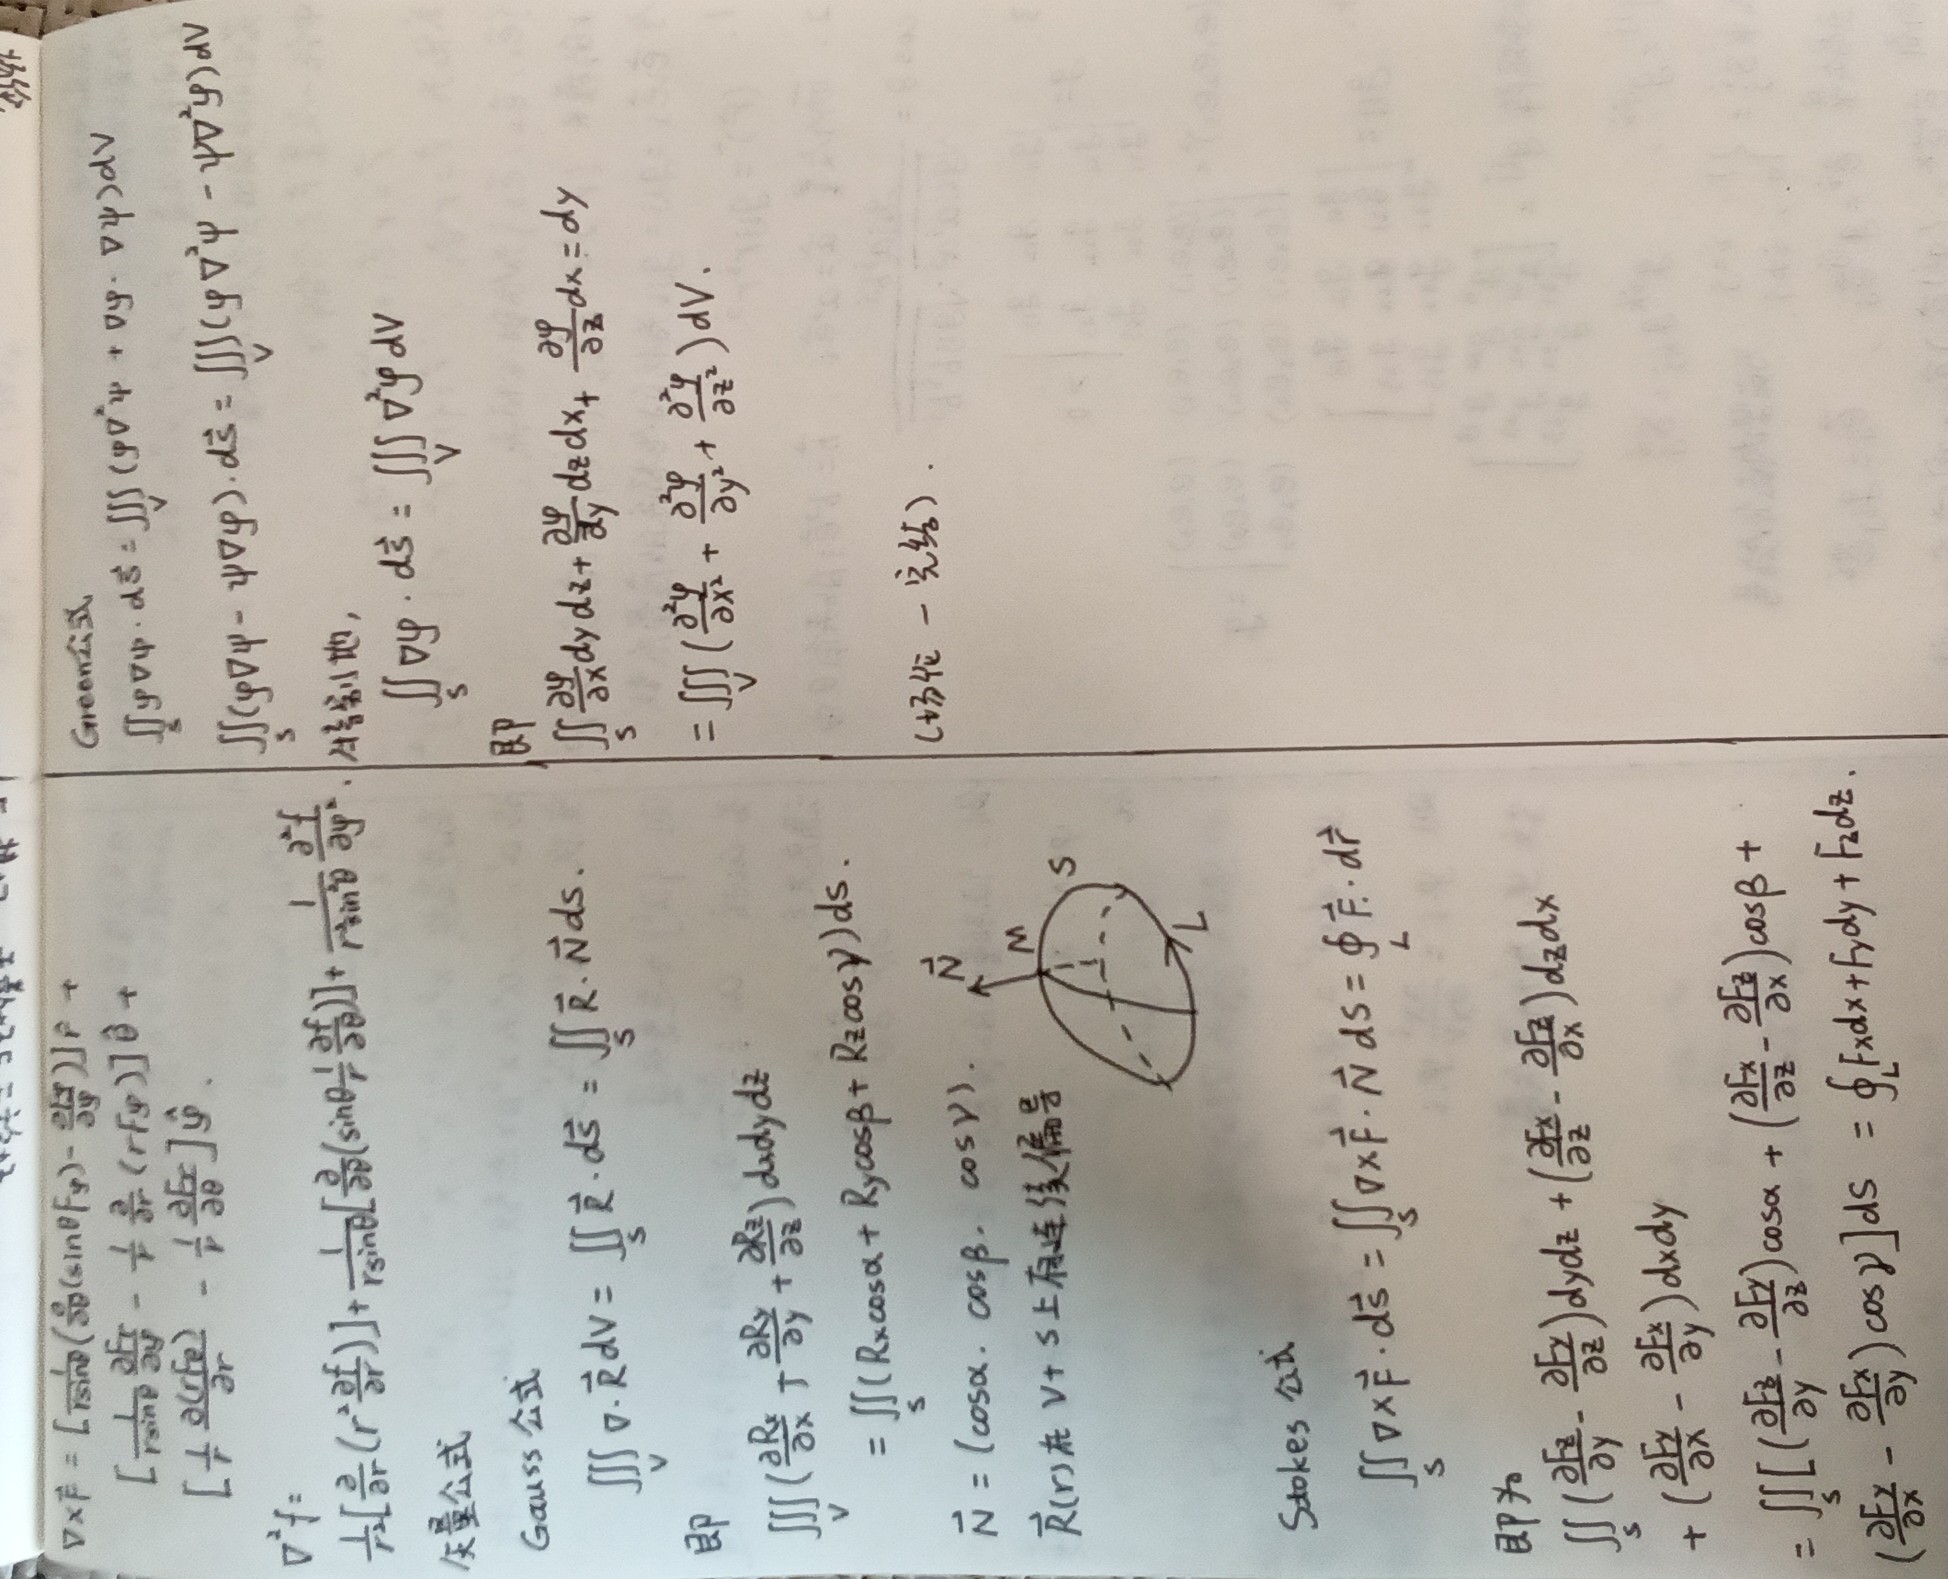 ∇×F⃗ = [1/(r sinθ) (∂/∂θ (sinθ Fφ) - ∂Fθ/∂φ)] r̂ +
[1/(r sinθ) ∂Fr/∂φ - 1/r ∂/∂r (rFφ)] θ̂ +
[1/r ∂(rFθ)/∂r - 1/r ∂Fr/∂θ] φ̂.
∇²f =
1/r² [∂/∂r (r² ∂f/∂r)] + 1/(r sinθ) [∂/∂θ (sinθ 1/r ∂f/∂θ)] + 1/(r² sin²θ) ∂²f/∂φ².
矢量公式
Gauss 公式
∭_V ∇·R⃗ dV = ∬_S R⃗·dS⃗ = ∬_S R⃗·N⃗ ds.
即
∭_V (∂Rx/∂x + ∂Ry/∂y + ∂Rz/∂z) dxdydz
= ∬_S (Rx cosα + Ry cosβ + Rz cosγ) ds.
N⃗ = (cosα. cosβ. cosγ).
R⃗(r) 在 V+S 上有连续偏导
N⃗
M
S
L
Stokes 公式
∬_S ∇×F⃗·dS⃗ = ∬_S ∇×F⃗·N⃗ ds = ∮_L F⃗·dr⃗
即为
∬_S (∂Fz/∂y - ∂Fy/∂z) dydz + (∂Fx/∂z - ∂Fz/∂x) dzdx
+ (∂Fy/∂x - ∂Fx/∂y) dxdy
= ∬_S [(∂Fz/∂y - ∂Fy/∂z) cosα + (∂Fx/∂z - ∂Fz/∂x) cosβ +
(∂Fy/∂x - ∂Fx/∂y) cosγ] ds = ∮_L Fxdx + Fydy + Fzdz.
Green公式
∬_S φ∇ψ·dS⃗ = ∭_V (φ∇²ψ + ∇φ·∇ψ) dV
∬_S (φ∇ψ - ψ∇φ)·dS⃗ = ∭_V (φ∇²ψ - ψ∇²φ) dV
特别地,
∬_S ∇φ·dS⃗ = ∭_V ∇²φ dV
即
∬_S ∂φ/∂x dydz + ∂φ/∂y dzdx + ∂φ/∂z dx = dy
= ∭_V (∂²φ/∂x² + ∂²φ/∂y² + ∂²φ/∂z²) dV.
(场论 - 完结).